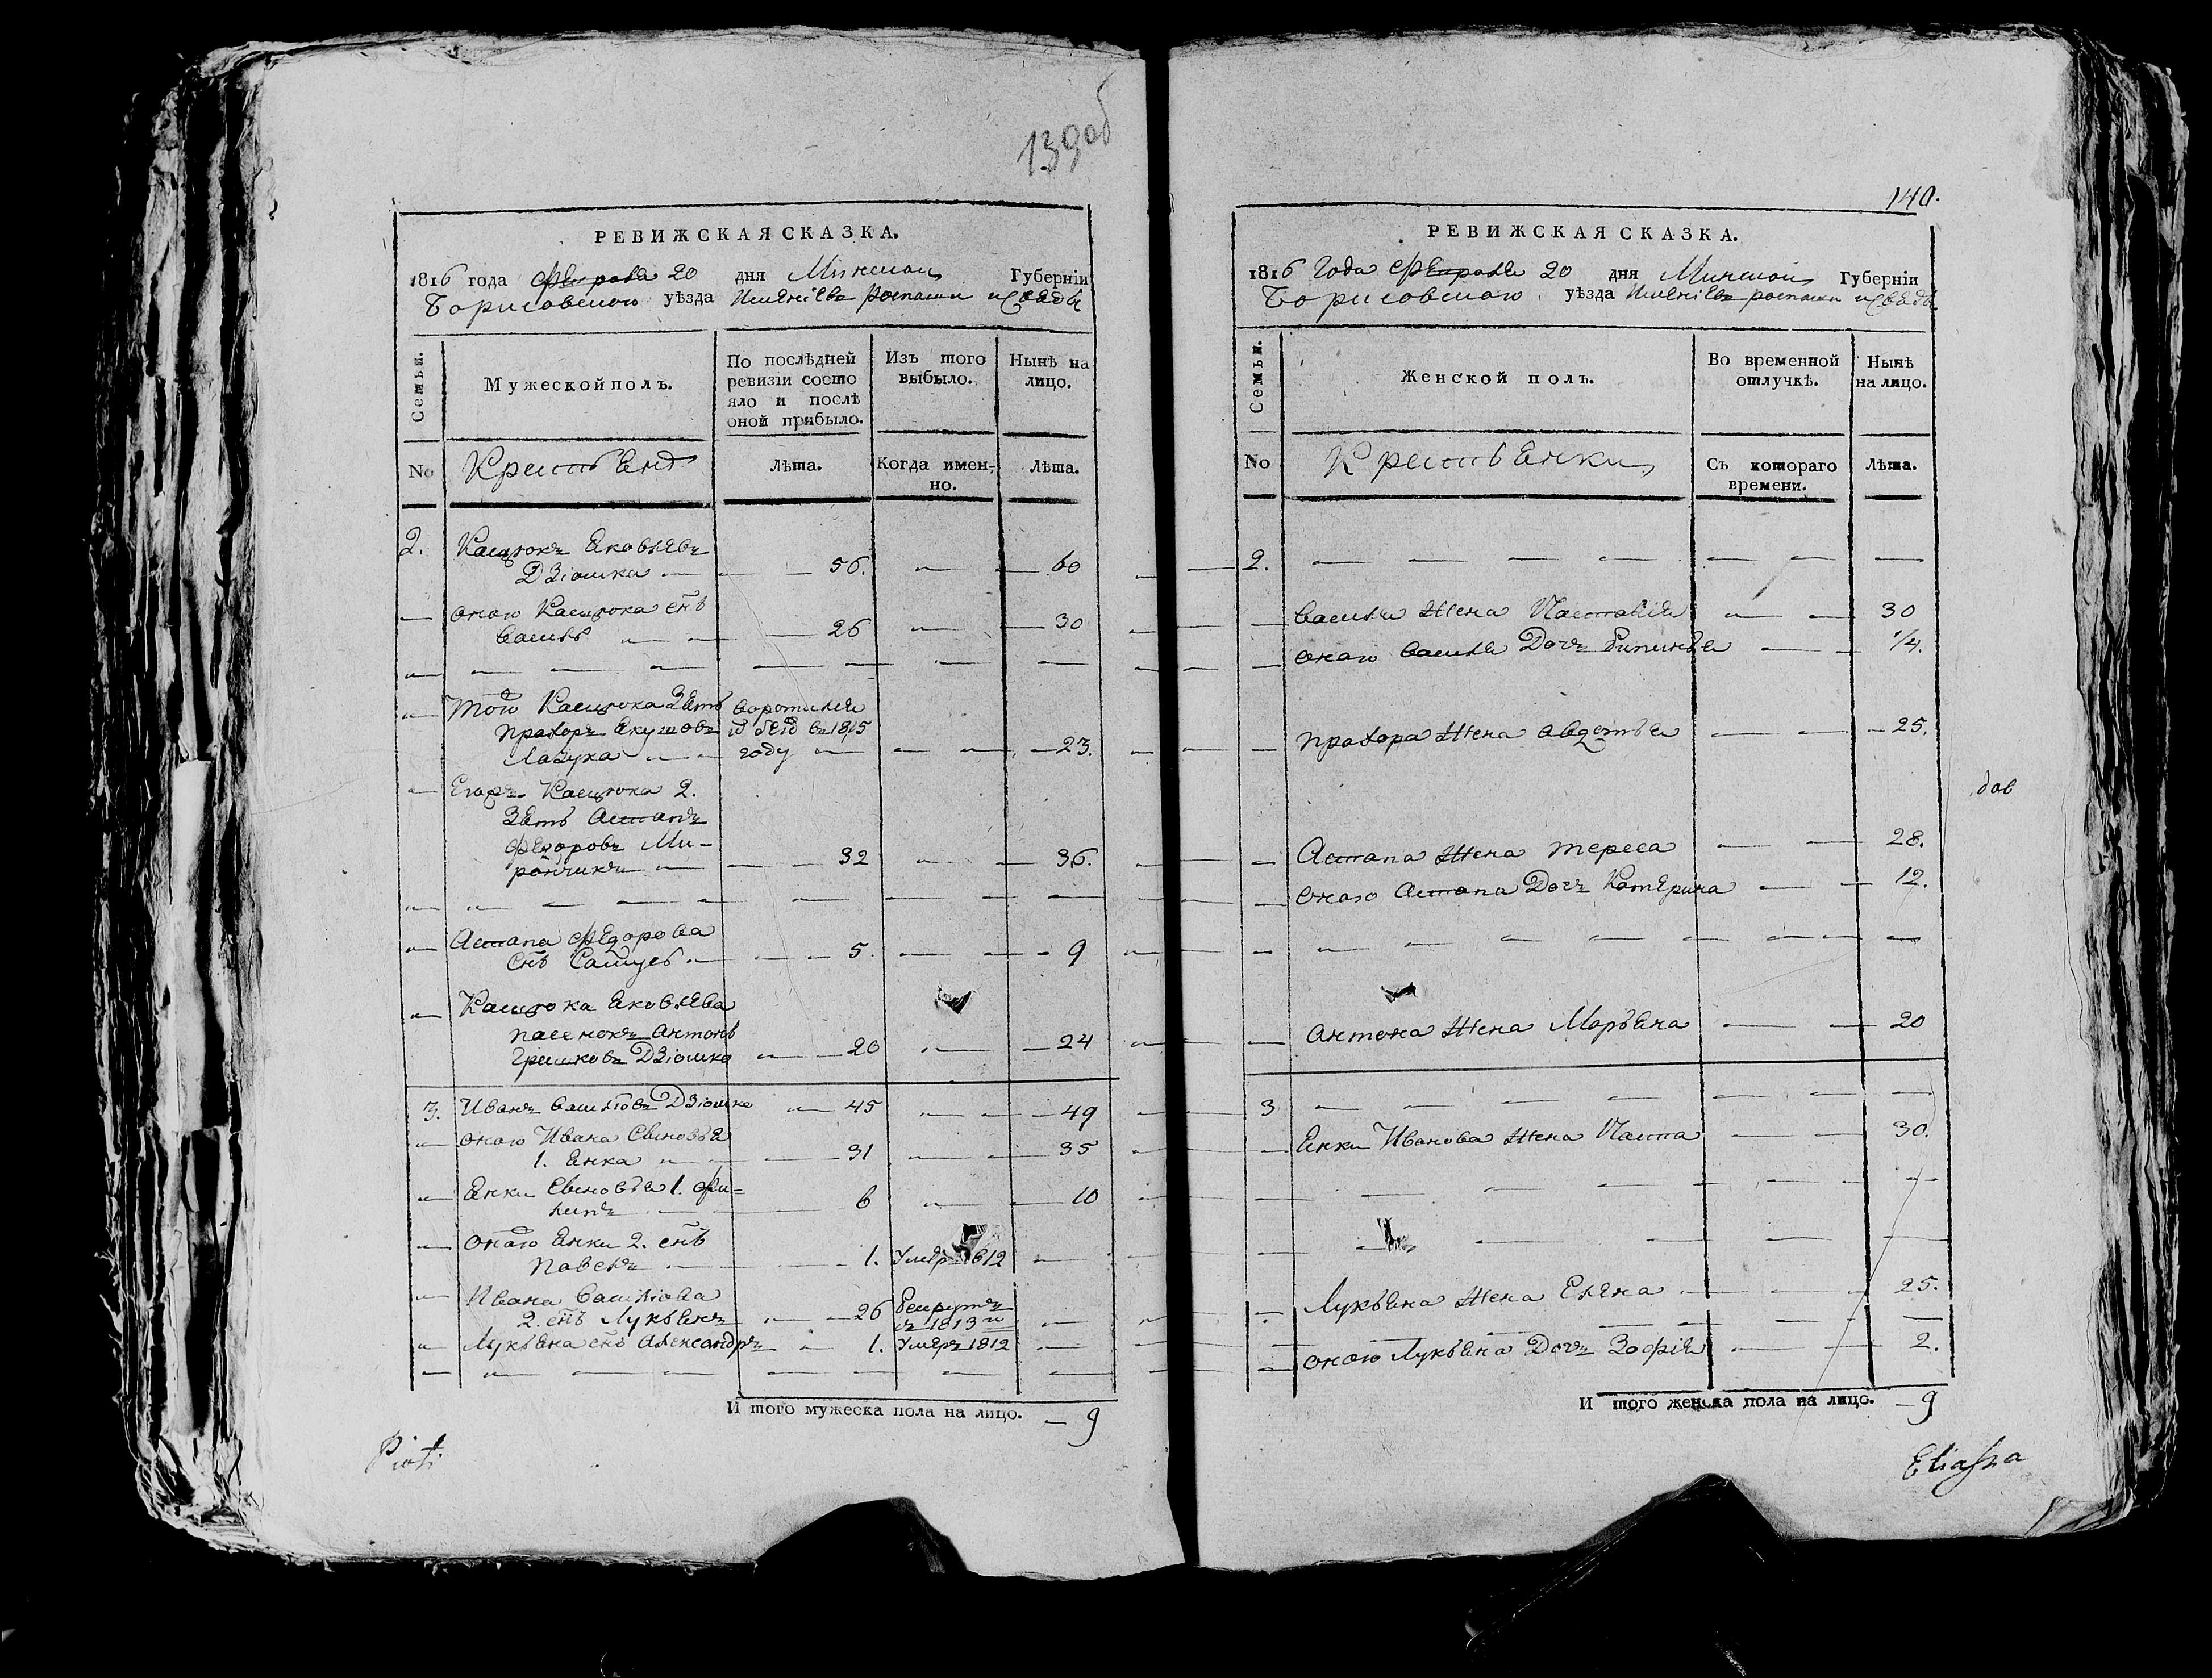 139об
РЕВИЖСКАЯ СКАЗКА.
1816 года февраля 20 дня Минской Губерніи
Борисовского уѣзда Имѣніевъ
Семьи.
Мужеской полъ.
По послѣдней ревизіи состояло и послѣ оной прибыло.
Изъ того выбыло.
Нынѣ на лицо.
No
Крестьянъ
Лѣта.
Когда именно.
Лѣта.
2. Касцюкъ Яковлевъ
Дзіошка — 56. — 60
оного Касцюка снъ
Василь — 26 — 30
того Касцюка зять воротился
прохоръ Якушовъ из бегов в 1815
Лазука — году — 23.
Егожъ Касцюка 2.
зять Астапъ
Федоровъ Ми-
рончикъ — 32 — 36.
Астапа Федорова
снъ — 5. — 9
Касцюка Яковлева
пасенокъ антонъ
Гришковъ Дзіошка — 20 — 24
3. Иванъ Васильовъ Дзіошка — 45 — 49
оного Ивана Сыновья
1. Янка — 31 — 35
Янки Сыновья 1. Фи=
липъ — 6 — 10
оного Янки 2. снъ
Павелъ — 1. Умеръ 1812
Ивана Васильова
2. снъ Лукьянъ — 26 Рекрутъ
съ 1813го
Лукьяна снъ Александръ — 1. Умеръ 1812
И того мужеска пола на лицо. — 9
140.
РЕВИЖСКАЯ СКАЗКА.
1816 Года февраля 20 дня Минской Губерніи
Борисовского уѣзда Имѣніевъ
Семьи.
Женской полъ.
Во временной отлучкѣ.
Нынѣ на лицо.
No
Крестьянки
Съ котораго времени.
Лѣта.
2.
Василя Жена Настазія — 30
оного Василя Дочъ — 1/4.
прохора Жена Авдотья — 25.
дов
Астапа Жена тереса — 28.
оного Астапа Дочъ Катерина — 12.
антона Жена Марьяна — 20
3
Янки Иванова Жена Наста — 30.
Лукьяна Жена Елена — 25.
оного Лукьяна Дочъ Зофія — 2.
И того женска пола на лицо. — 9
Eliasza